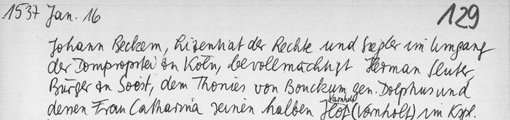 1537 Jan. 16
129
Johann Beckem, Lizentiat der Rechte und Siegler im Umgang
der Dompropstei in Köln, bevollmächtigt Herman Sluter,
Bürger in Soest, dem Thonies von Bouckum gen. Dolphus und
dessen Frau Catharina seinen halben Hof (Varnholt) im Kspl.